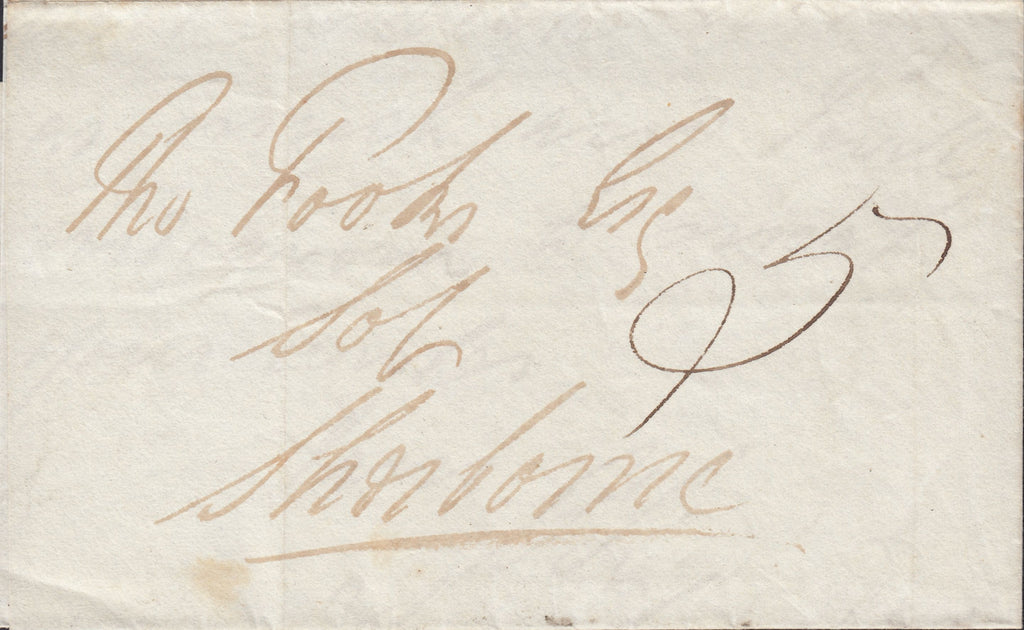 Tho Fooks Esq
Sol
Sherborne
5